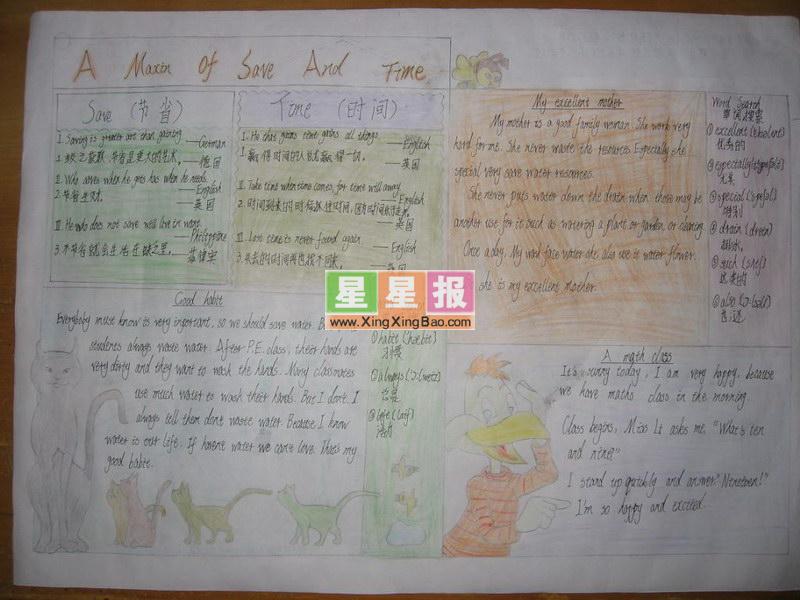 A Maxin Of Save And Time
Save (节省)
1. Saving is greater are than gaining
——German
1. 较之获取,节省是更大的艺术。
——德国
II. Who saves when he gets has when he needs.
——English
2. 节省生财.
——英国
III. He who does not save well live in want.
——Philippine
3. 不节省就会生活在缺乏里。
——菲律宾
Time (时间)
1. He that gains time gains all things.
——English
1. 赢得时间的人就赢得一切。
——英国
II. Take time when time comes, for time will away.
——English
2. 时间到来的时候抓住时间,
——英国
III. Lost time is never found again
——English
3. 失去的时间再也找不回来。
My excellent mother
My mother is a good family woman. She work very
hard for me. She never waste the resources. Especially she
special very save water resources.
She never puts water down the drain when there may be
another use for it such as watering a plant or garden, or cleaning.
Once a day. My wash face water she also use it water flower.
she is my excellent mother.
Word Search
单词搜索
① excellent
优秀的
② especially
尤其
③ special
特别
④ drain (drein)
⑤ such
这类的
⑥ also
Good habit
Everybody must know is very important, so we should save water. B
students always waste water. After P.E. class, their hands are
very dirty and they want to wash the hands. Many classmates
use much water to wash their hands. But I don't. I
always tell them don't waste water. Because I know
water is our life. If haven't water we can't love. That's my
good habit.
① habit
习惯
② always
总是
③ life (laif)
星星报
www.XingXingBao.com
A math class
It's sunny today, I am very happy, because
we have maths class in the morning.
Class begins, Miss Li asks me, "What's ten
and nine?"
I stand up quickly and answer "Nineteen!"
I'm so happy and excited.